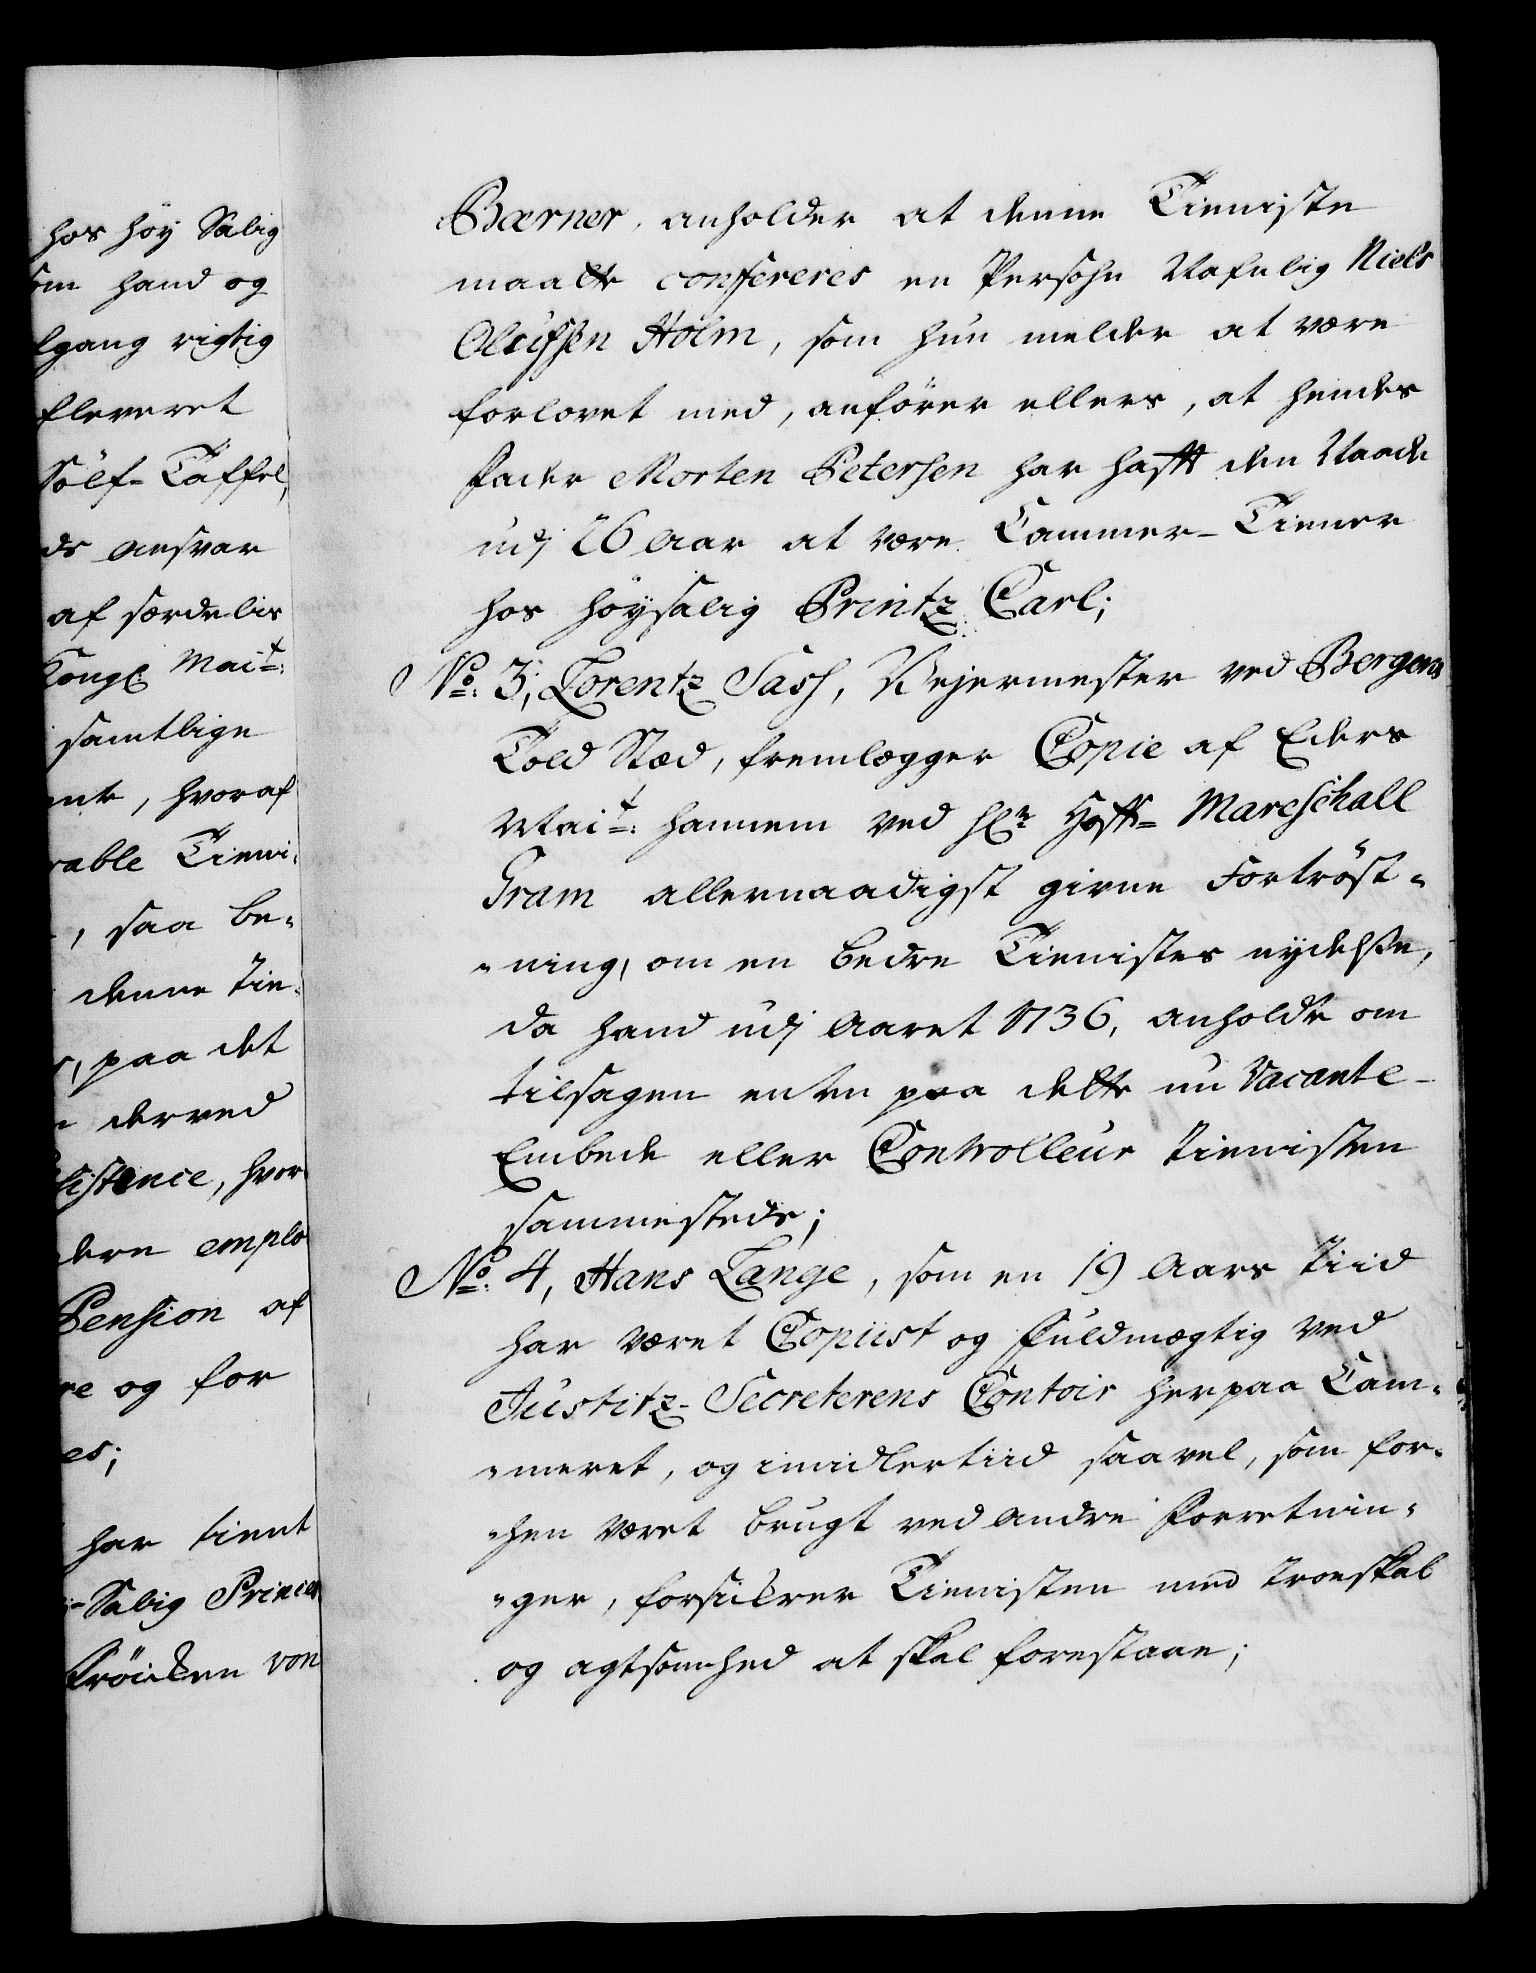 hos høy Salig
som hand og
lgang rigtig
fleveret
Sölf- Taffel,
ds ansvar
af særdelis
Kongl. Mait:
samtlige
nte, hvoraf
rable Tieni-
, saa be-
denne Tie-
, paa det
derved
sistence, hvor
dere emplo
Pension af
re og for
es;
har tient
Salig Princes
Fröicken von
Bærner, anholder at denne Tieniste
maatte confereres en Persohn Nafnlig Niels
Olufsen Holm, som hun melder at være
forlovet med, anfører ellers, at hendes
Fader Morten Petersen har hafft den Naade
udj 26 Aar at være Cammer-Tiener
hos høysalig Printz Carl;
No: 3, Lorentz Sass, Vejermester ved Bergens
Told Stæd, fremlægger Copie af Eders
Mait: hannem ved Hr. Hoff- Mareschall
Gram allernaadigst givne Fortröst-
ning, om en bedre Tienistes nydelse,
da hand udj Aaret 1736, anholdte om
tilsagen enten paa dette nu Vacante
Embede eller Controlleur Tienisten
sammesteds;
No: 4, Hans Lange, som en 19 Aars Tiid
har været Copiist og Fuldmægtig ved
Justitz-Secreterens Contoir herpaa Cam-
meret, og imidlertiid saavel, som for-
hen været brugt ved andre Forretnin-
ger, forsickrer Tienisten med troeskab
og agtsomhed at skal forestaae;